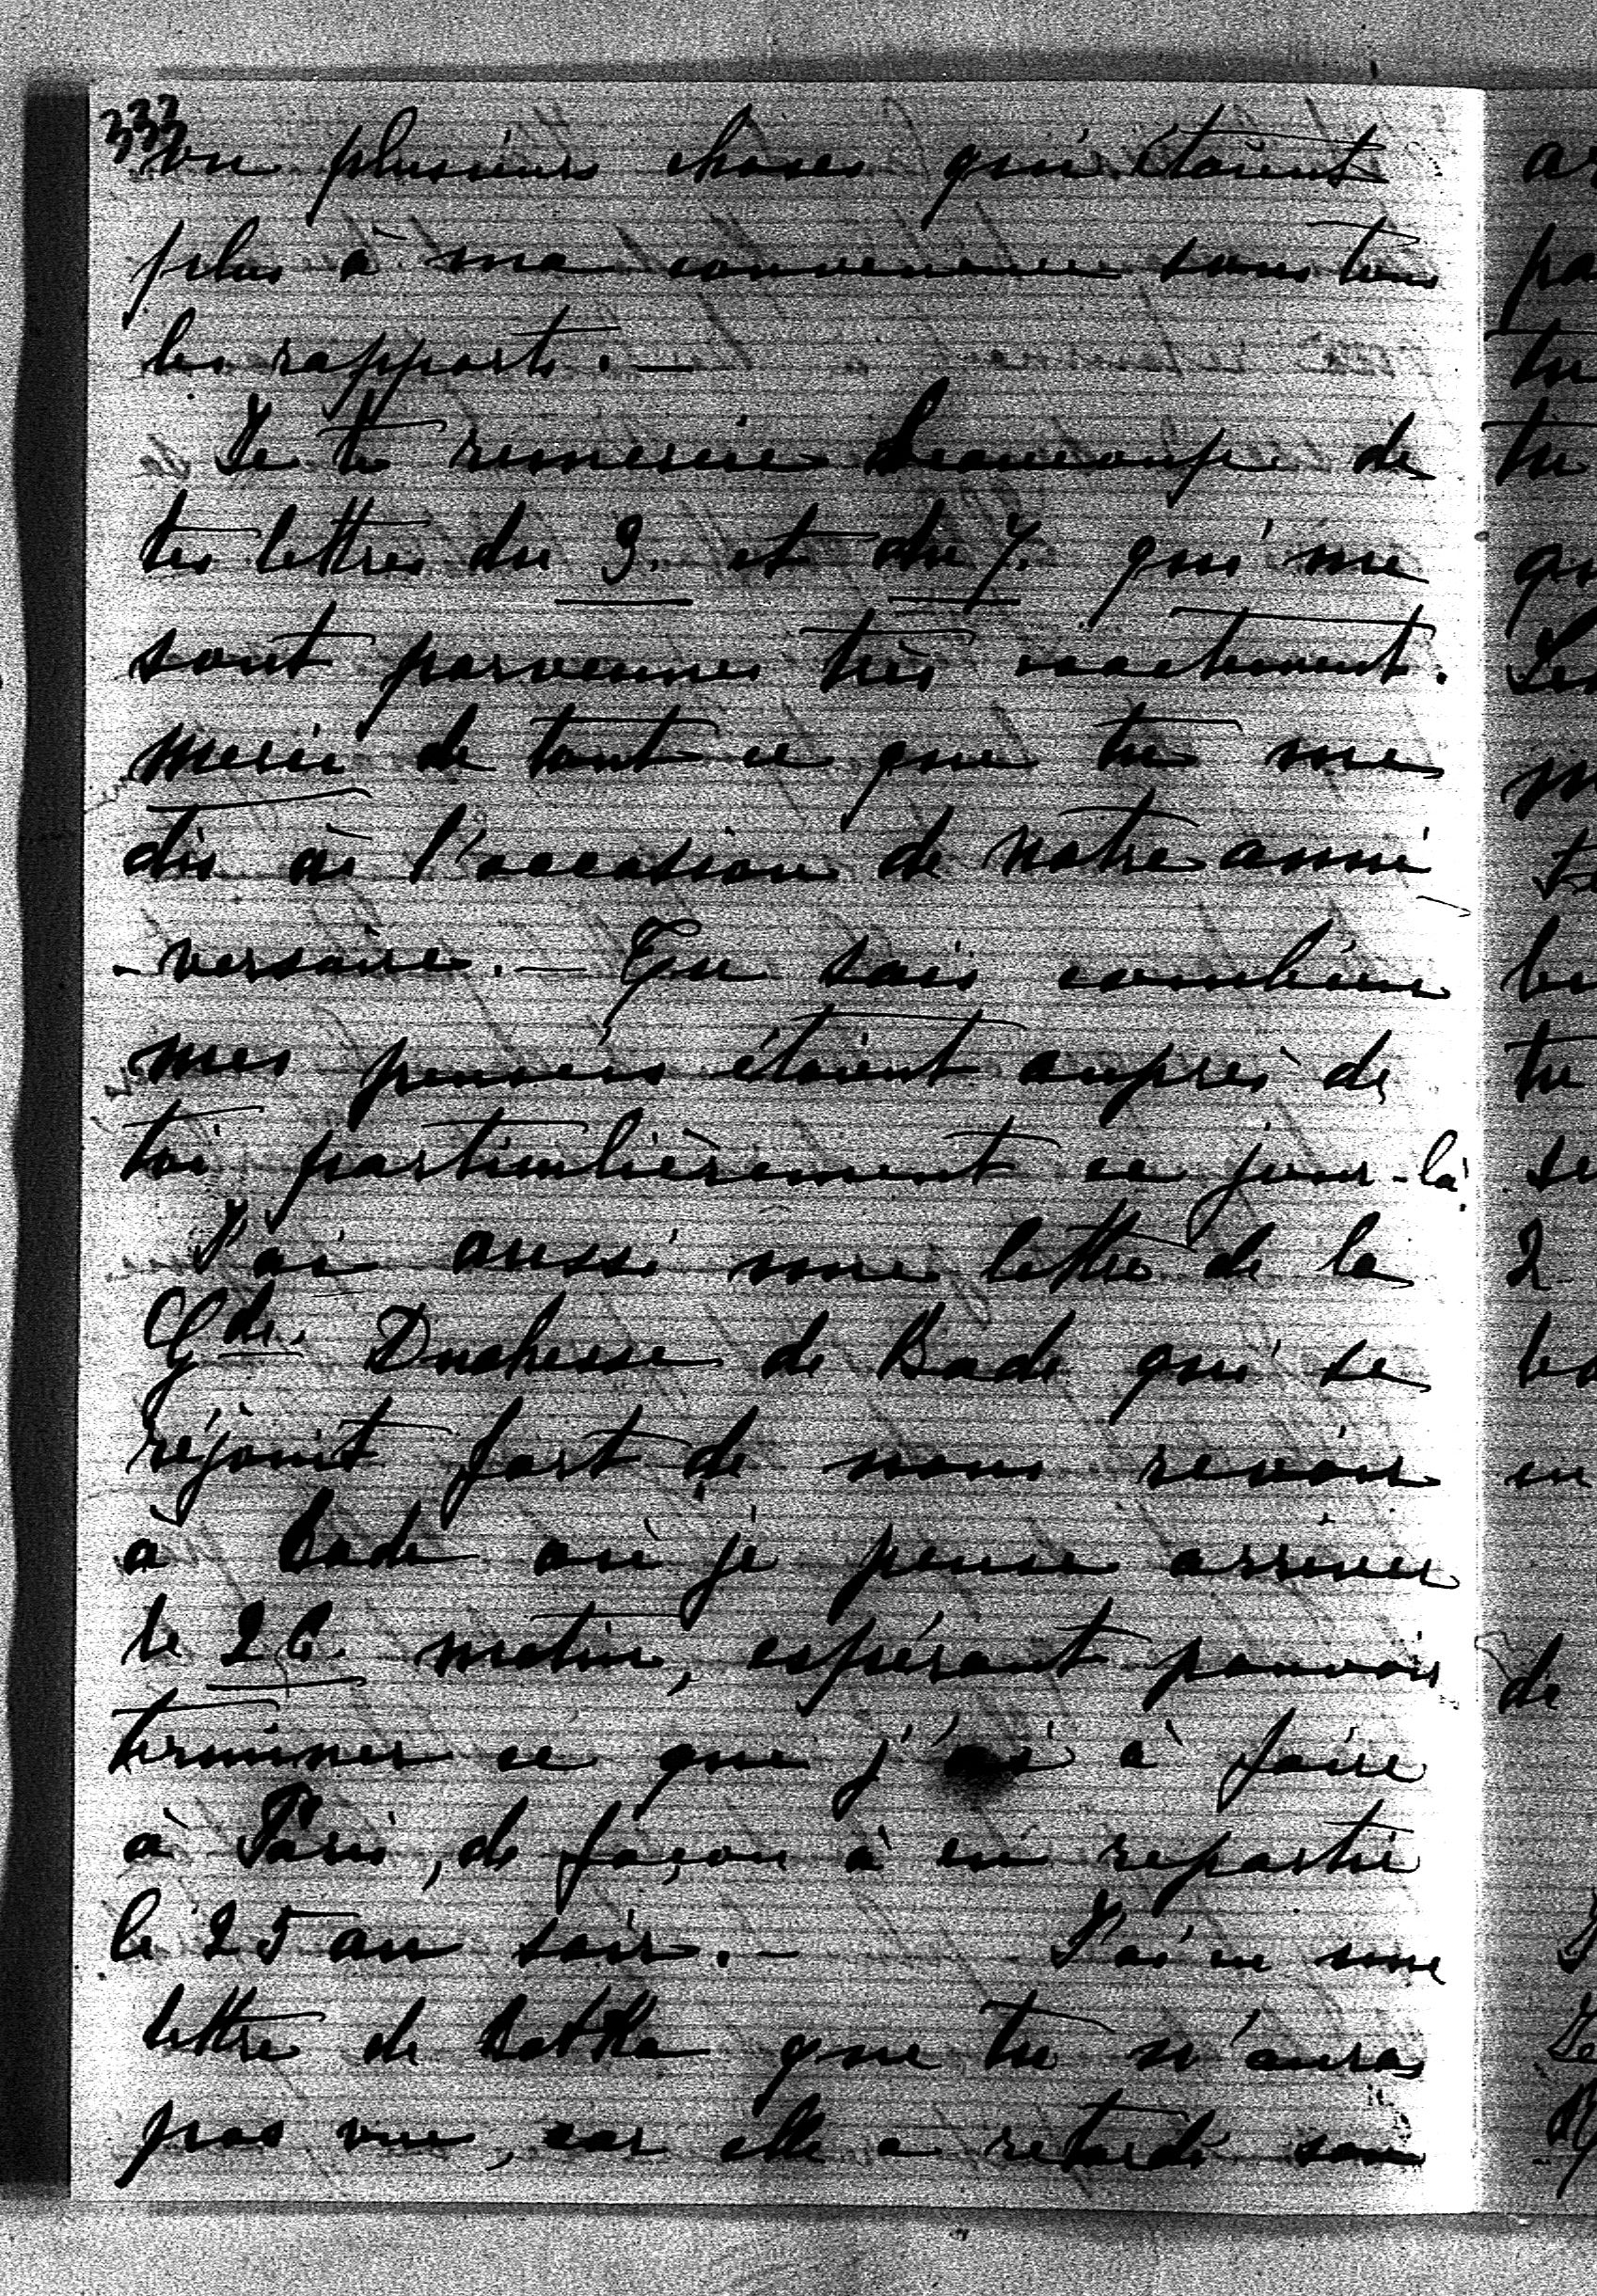 333
vu plusieurs choses qui étaient
plus à ma convenance sous tous
les rapports. —
Je te remercie beaucoup de
tes lettres du 3. et du 7. qui me
sont parvenues très exactement.
Merci de tout ce que tu me
dis à l'occasion de notre anni
-versaire. — Tu sais combien
mes pensées étaient auprès de
toi particulièrement ce jour-là!
J'ai aussi une lettre de la
Gde. Duchesse de Bade qui se
réjouit fort de nous revoir
à Bade où je pense arriver
le 26. matin, espérant pouvoir
terminer ce que j'ai à faire
à Paris, de façon à en repartir
le 25 au soir. — J'ai eu une
lettre de que tu n'auras
pas vue, car elle a retardé son